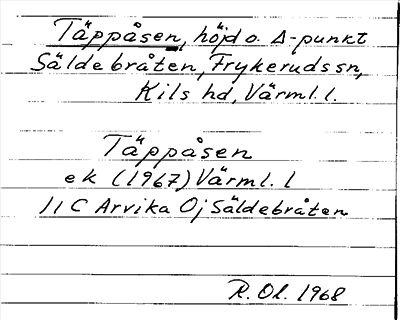 Täppåsen, höjd o. Δ-punkt
Säldebråten, Frykeruds sn,
Kils hd, Värml. l.
Täppåsen
ek (1967) Värml. l
11 C Arvika Oj Säldebråten
R. Ol. 1968